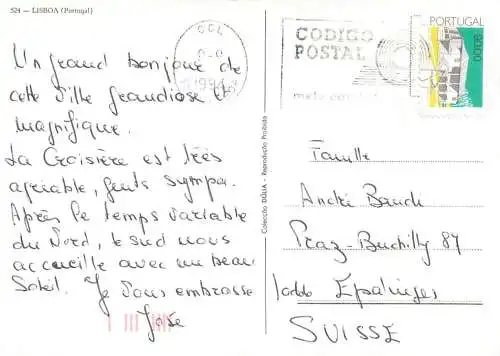 524 — LISBOA (Portugal)
CCL
1994
CODIGO
POSTAL
PORTUGAL
Un grand bonjour de
cette ville grandiose et
magnifique.
La Croisière est très
agréable, gents sympa.
Après le temps variable
du Nord, le sud nous
accueille avec un beau
Soleil. Je vous embrasse
José
Colecção DÚLIA - Reprodução Proibida
Famille
André Baudi
Praz-Buchilly 87
1066 Epalinges
SUISSE